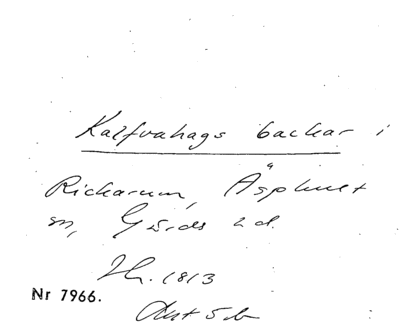 Kalfvahags backar i
Rickarum, Äsphult
sn, Gärds hd.
Th. 1813
Nr 7966.
Avt 5 b